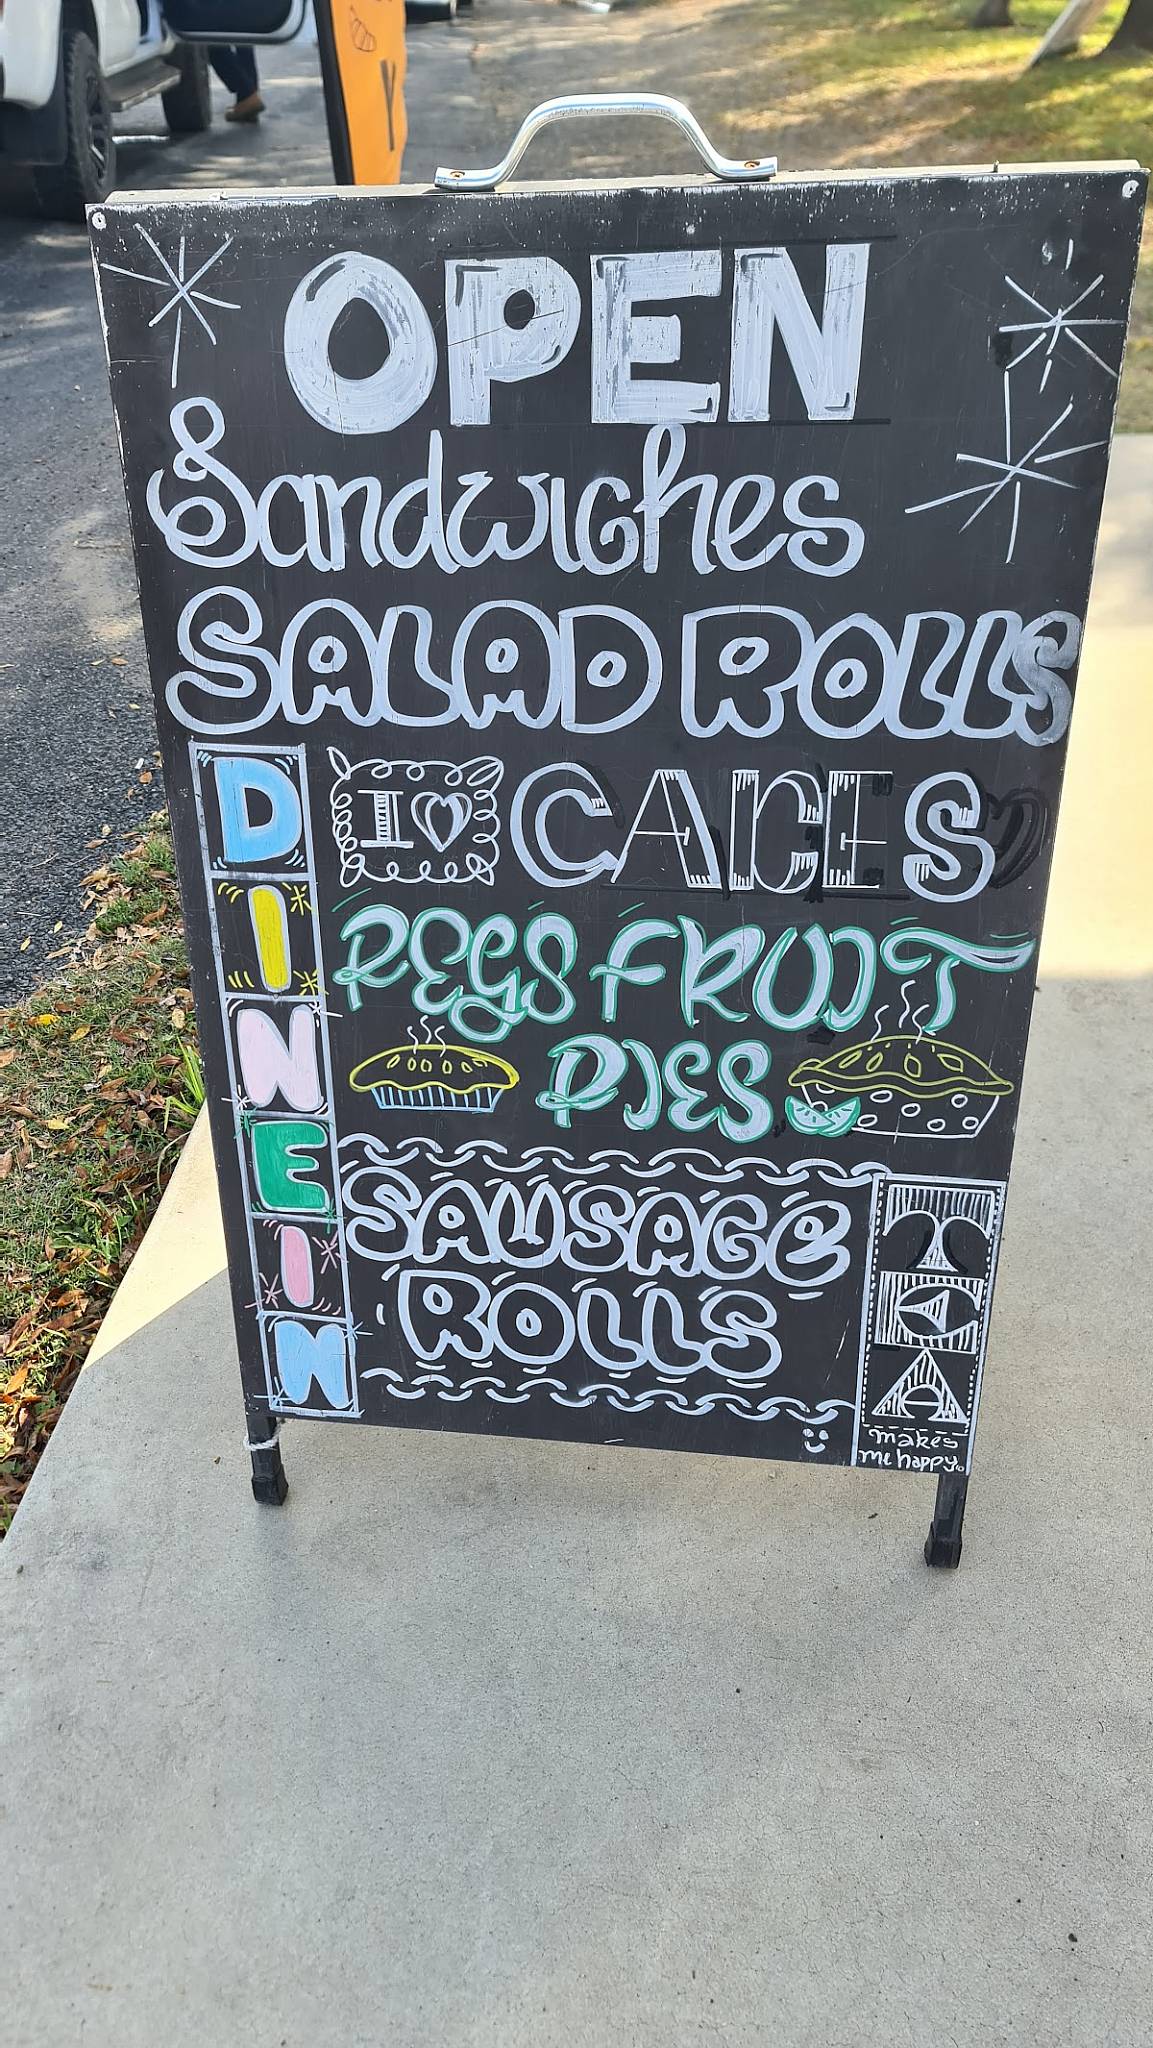 Y
OPEN
Sandwiches
SALAD ROLLS
DINE IN
I ♥ CAKES
REGS FRUIT
PIES
SAUSAGE
ROLLS
TEA
makes
me happy